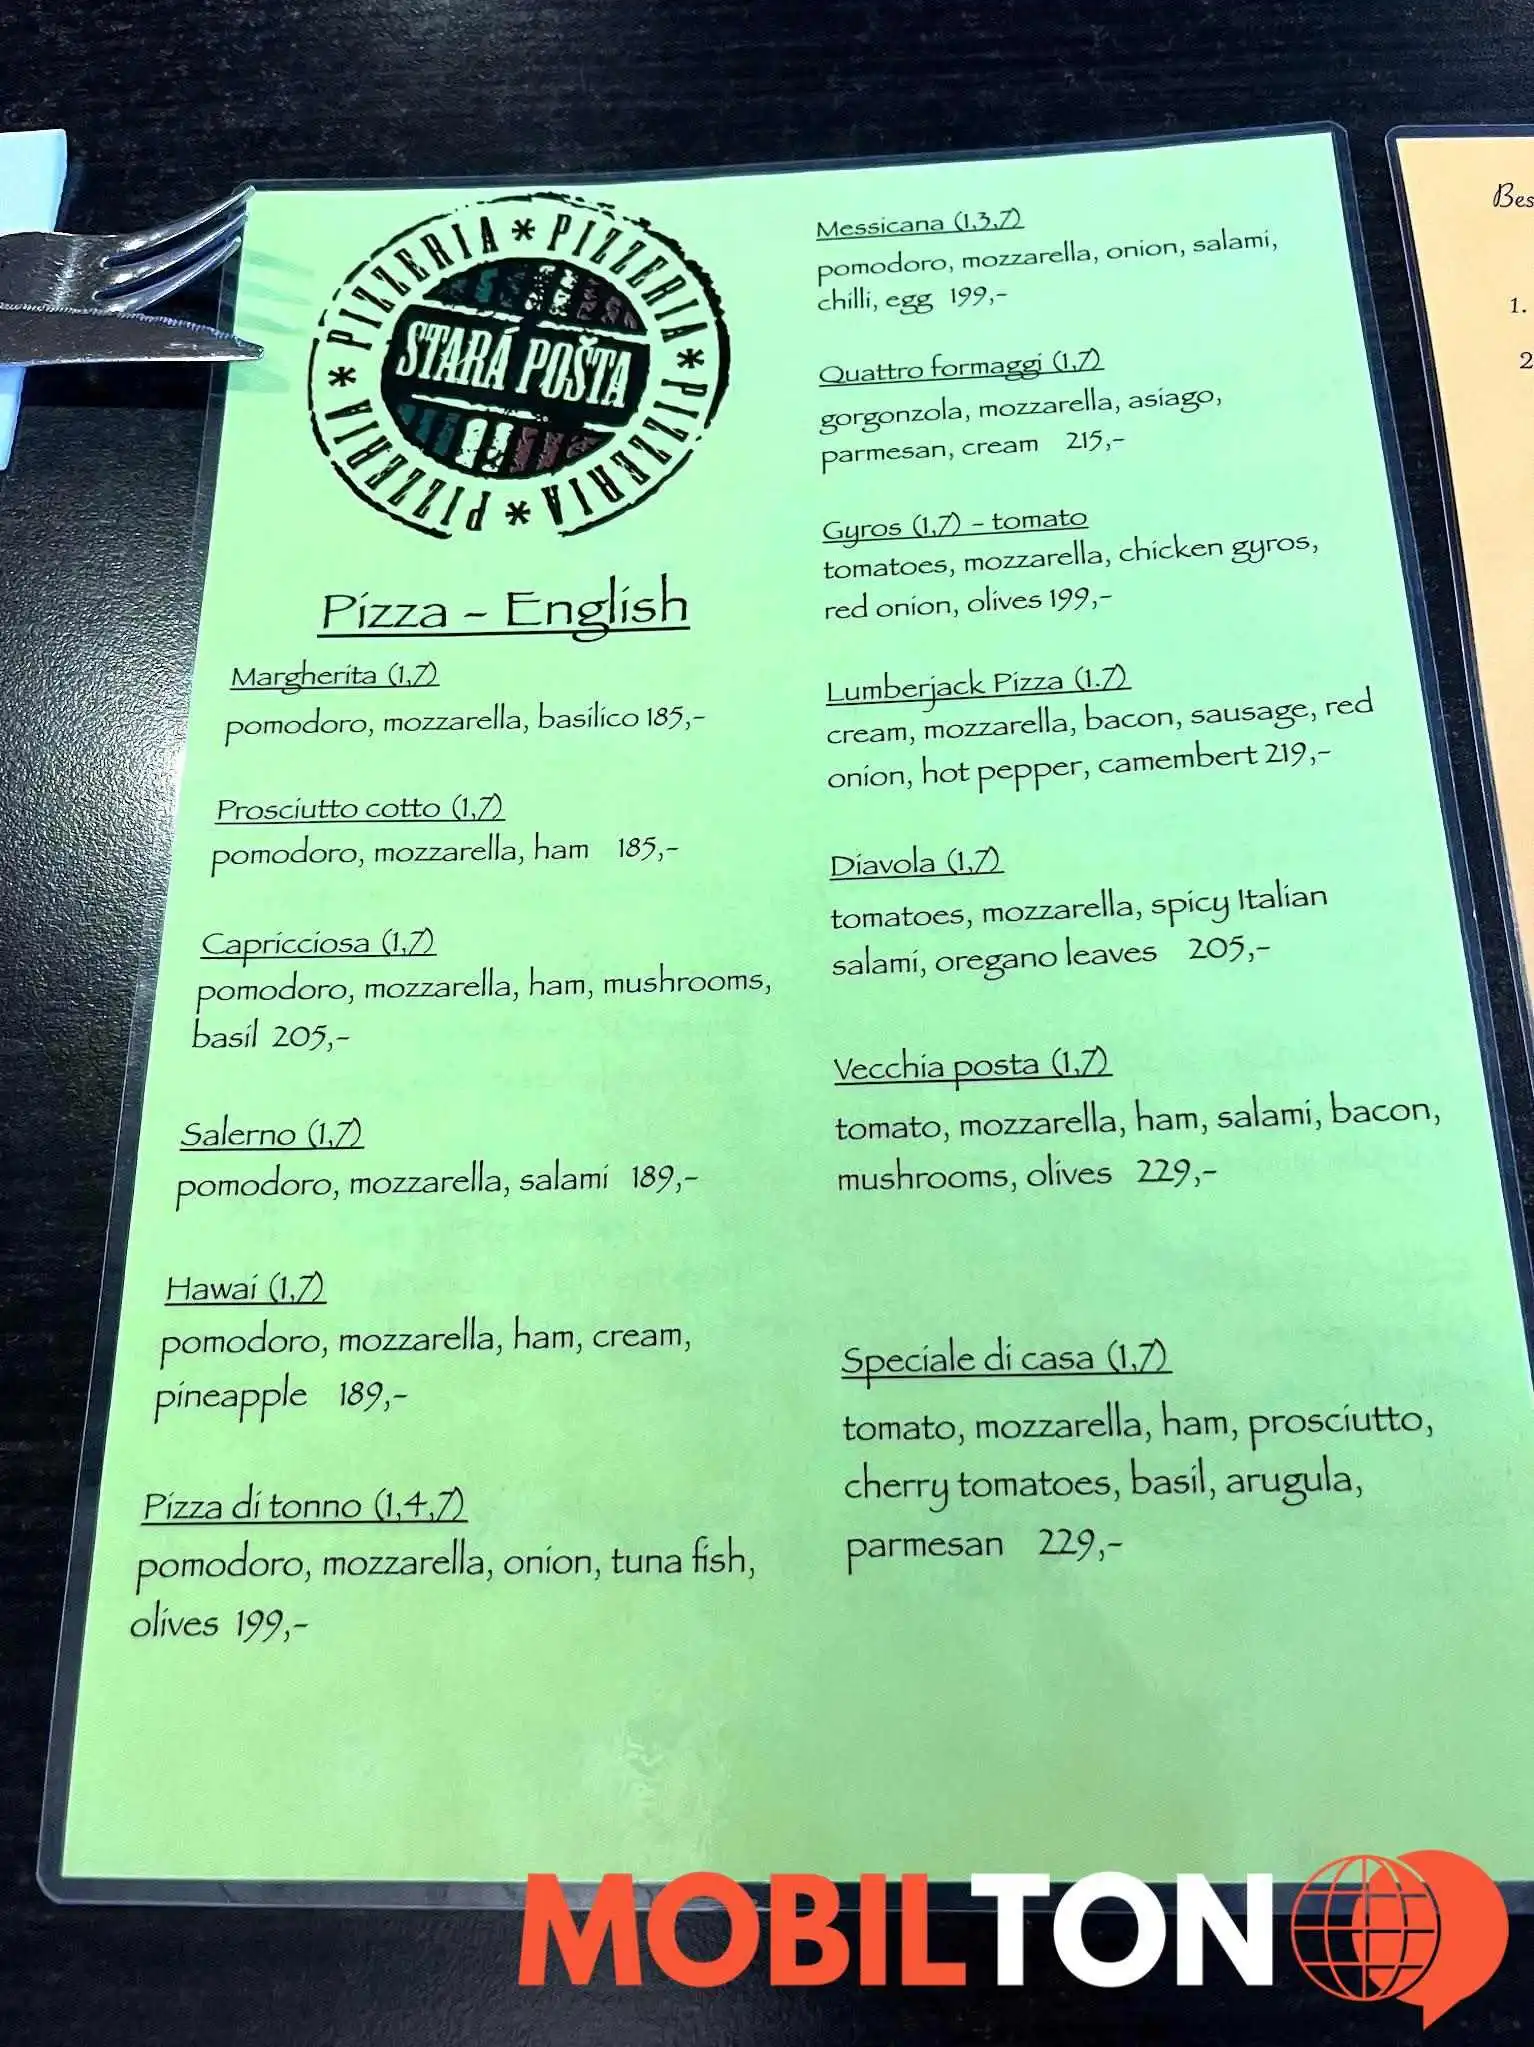 PIZZERIA * PIZZERIA * PIZZERIA * PIZZERIA *
STARÁ POŠTA
Pizza - English
Margherita (1,7)
pomodoro, mozzarella, basilico 185,-
Prosciutto cotto (1,7)
pomodoro, mozzarella, ham 185,-
Capricciosa (1,7)
pomodoro, mozzarella, ham, mushrooms,
basil 205,-
Salerno (1,7)
pomodoro, mozzarella, salami 189,-
Hawai (1,7)
pomodoro, mozzarella, ham, cream,
pineapple 189,-
Pizza di tonno (1,4,7)
pomodoro, mozzarella, onion, tuna fish,
olives 199,-
Messicana (1,3,7)
pomodoro, mozzarella, onion, salami,
chilli, egg 199,-
Quattro formaggi (1,7)
gorgonzola, mozzarella, asiago,
parmesan, cream 215,-
Gyros (1,7) - tomato
tomatoes, mozzarella, chicken gyros,
red onion, olives 199,-
Lumberjack Pizza (1.7)
cream, mozzarella, bacon, sausage, red
onion, hot pepper, camembert 219,-
Diavola (1,7)
tomatoes, mozzarella, spicy Italian
salami, oregano leaves 205,-
Vecchia posta (1,7)
tomato, mozzarella, ham, salami, bacon,
mushrooms, olives 229,-
Speciale di casa (1,7)
tomato, mozzarella, ham, prosciutto,
cherry tomatoes, basil, arugula,
parmesan 229,-
1.
2
MOBILTON